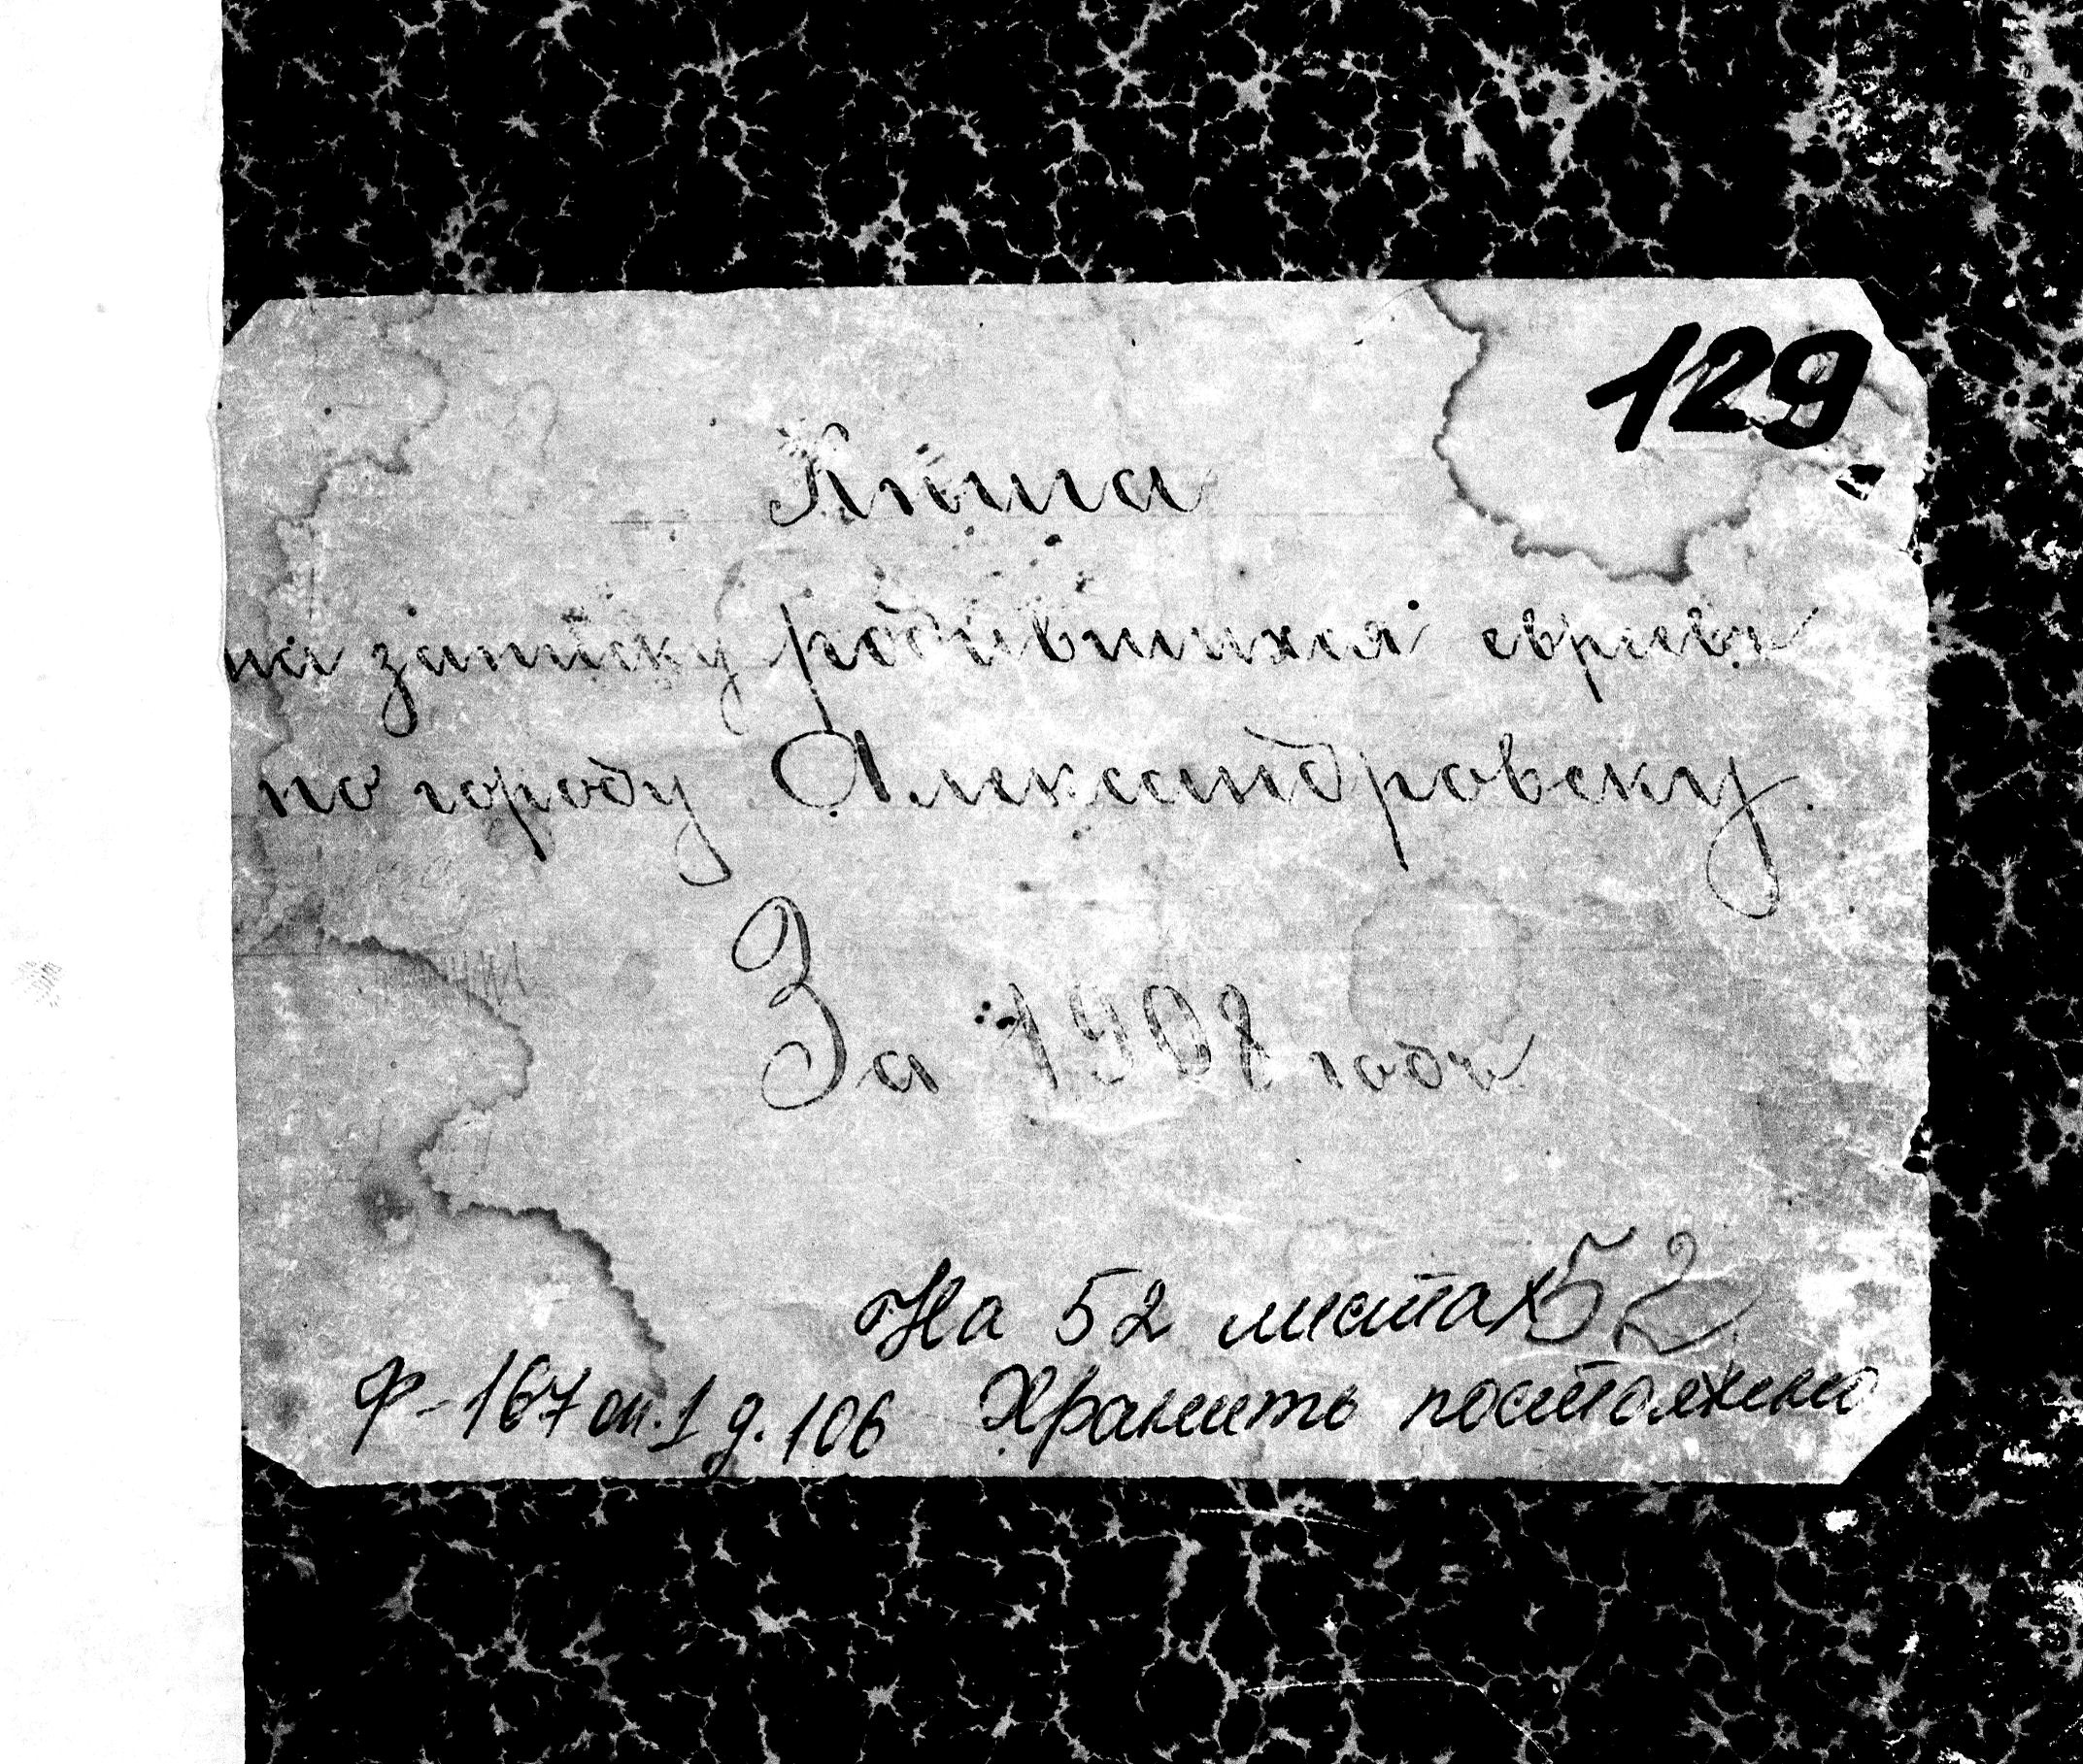 129
Книга
на записку родившихся евреевъ
по городу Александровску.
За 1908 годъ
На 52 листах 52
Ф-167 оп.1 д.106 Хранить постоянно